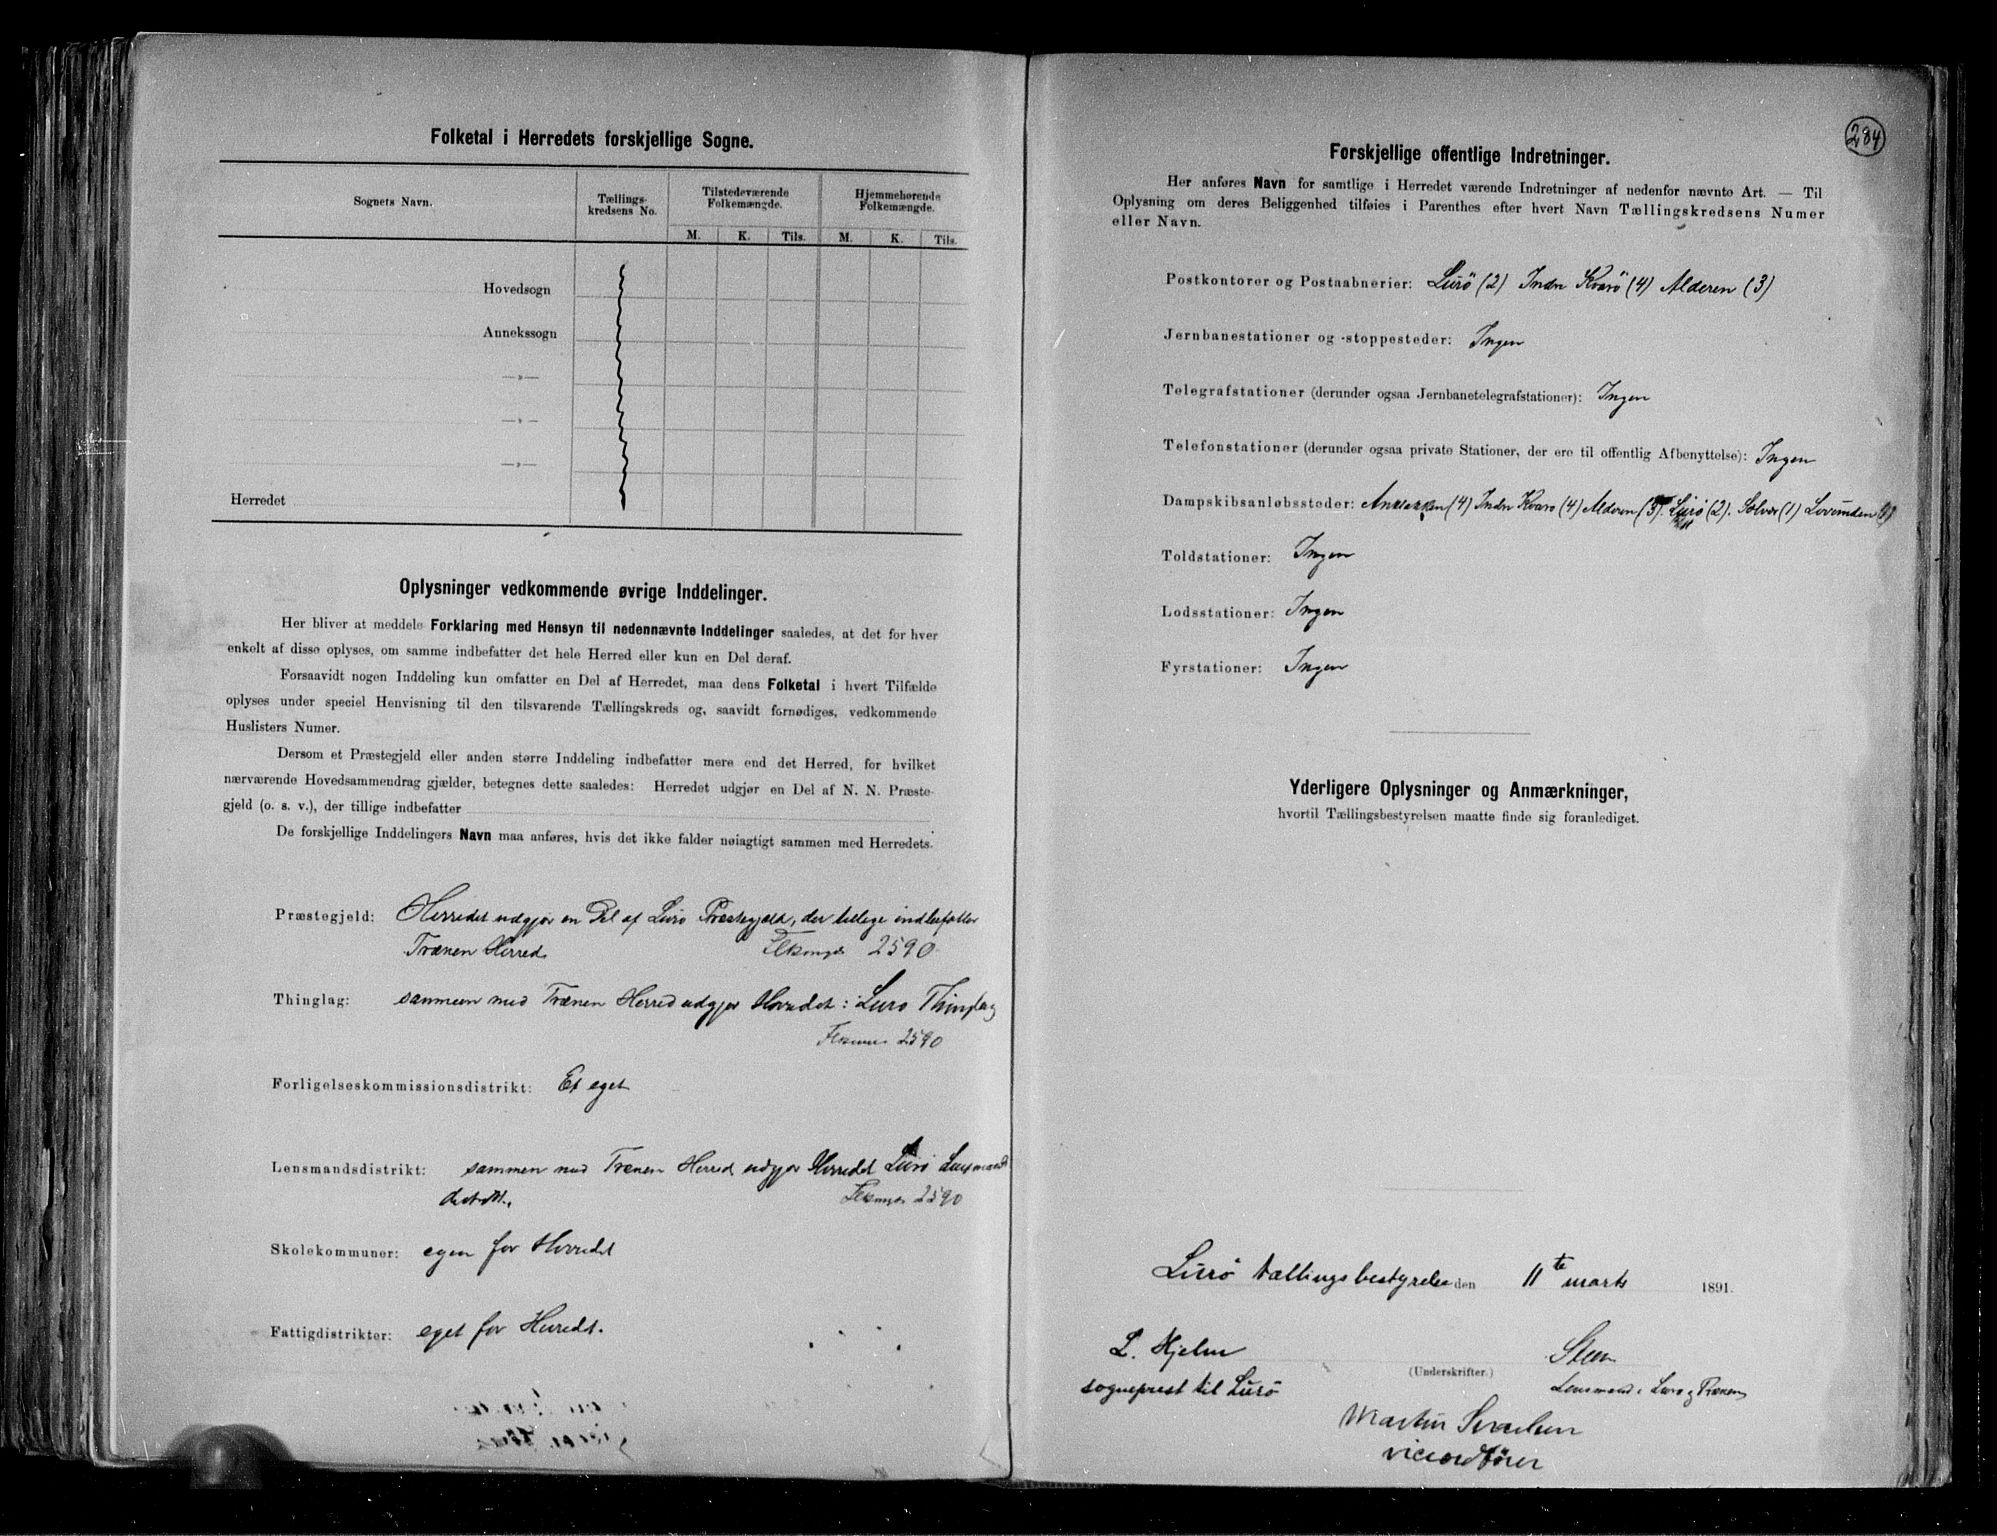 Folketal i Herredets forskjellige Sogne.
Sognets Navn. Tællings- Tilstedeværende Hjemmehørende
kredsens No. Folkemængde. Folkemængde.
M. K. Tils. M. K. Tils.
Hovedsogn
Annekssogn
—„—
—„—
—„—
Herredet
Oplysninger vedkommende øvrige Inddelinger.
Her bliver at meddele Forklaring med Hensyn til nedennævnte Inddelinger saaledes, at det for hver
enkelt af disse oplyses, om samme indbefatter det hele Herred eller kun en Del deraf.
Forsaavidt nogen Inddeling kun omfatter en Del af Herredet, maa dens Folketal i hvert Tilfælde
oplyses under speciel Henvisning til den tilsvarende Tællingskreds og, saavidt fornødiges, vedkommende
Huslisters Numer.
Dersom et Præstegjeld eller anden større Inddeling indbefatter mere end det Herred, for hvilket
nærværende Hovedsammendrag gjælder, betegnes dette saaledes: Herredet udgjør en Del af N. N. Præste-
gjeld (o. s. v.), der tillige indbefatter
De forskjellige Inddelingers Navn maa anføres, hvis det ikke falder nøiagtigt sammen med Herredets.
Præstegjeld: Herredet udgjør en Del af Lurø Præstegjeld, der tillige indbefatter
Trænen Herred 2590
Thinglag: sammen med Trænen Herred udgjør Herredet: Lurø Thinglag
2590
Forligelseskommissionsdistrikt: Et eget
Lensmandsdistrikt: sammen med Trænen Herred udgjør Herredet Lurø Lensmands
distrikt. 2590
Skolekommuner: egen for Herredet
Fattigdistrikter: eget for Herredt.
284
Forskjellige offentlige Indretninger.
Her anføres Navn for samtlige i Herredet værende Indretninger af nedenfor nævnte Art. — Til
Oplysning om deres Beliggenhed tilføies i Parenthes efter hvert Navn Tællingskredsens Numer
eller Navn.
Postkontorer og Postaabnerier: Lurö (2) Indre Kvarö (4) Alderen (3)
Jernbanestationer og -stoppesteder: Ingen
Telegrafstationer (derunder ogsaa Jernbanetelegrafstationer): Ingen
Telefonstationer (derunder ogsaa private Stationer, der ere til offentlig Afbenyttelse): Ingen
Dampskibsanløbssteder: (4) Indre Kvarø (4) Alderen (3). Lurø (2). Solvær (1) Lovunden
Toldstationer: Ingen
Lodsstationer: Ingen
Fyrstationer: Ingen
Yderligere Oplysninger og Anmærkninger,
hvortil Tællingsbestyrelsen maatte finde sig foranlediget.
Lurö tællingsbestyrelse den 11te marts 1891.
L. Hjelm Steen
(Underskrifter.)
sogneprest til Lurö Lensmand i Lurø og Trænen
Martin
viceordfører